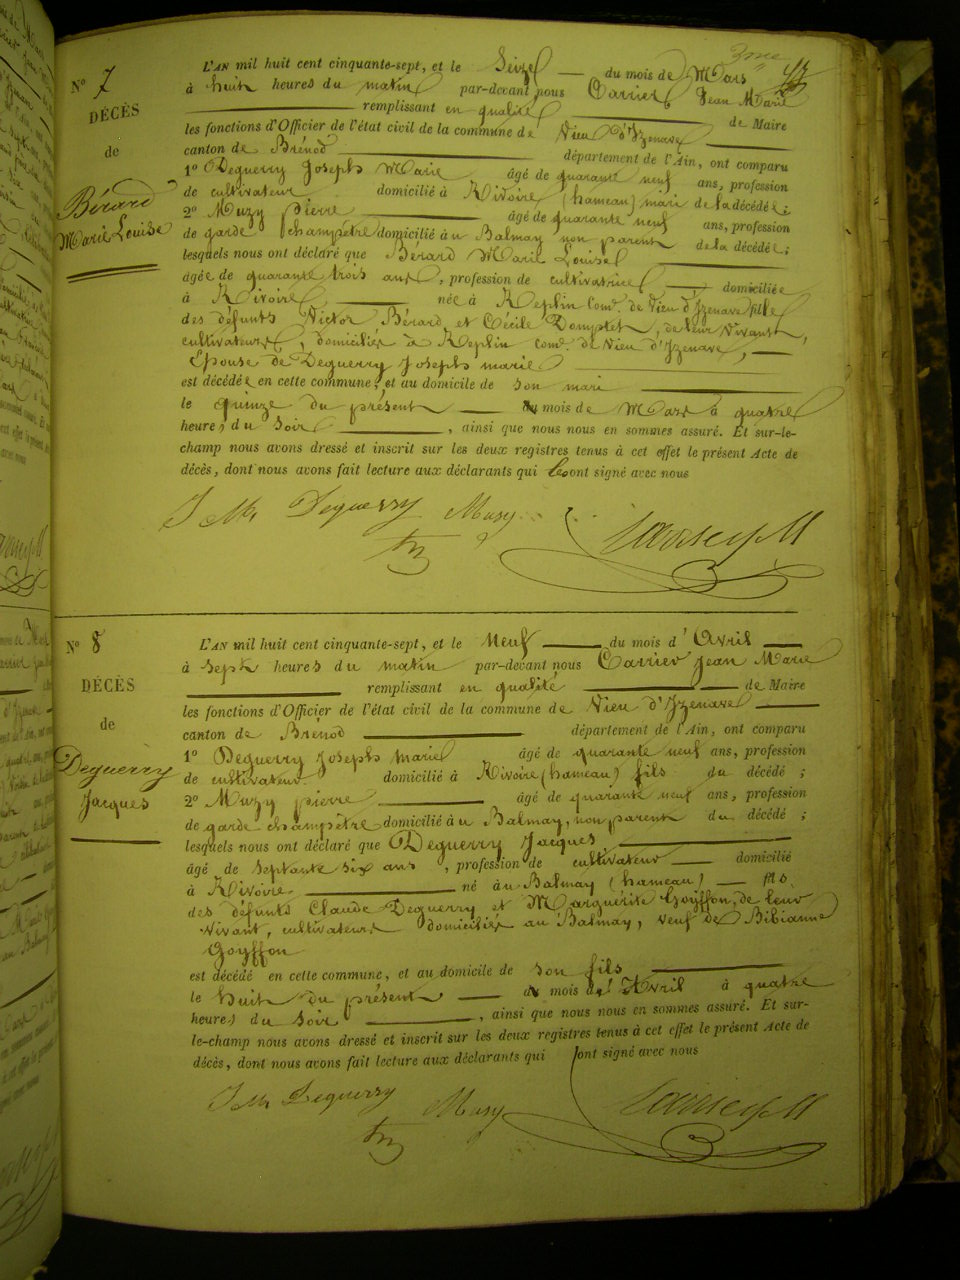 N° 7
DÉCÈS
de
Bérard
Marie Louise
L'AN mil huit cent cinquante-sept, et le Seize du mois de Mars
à huit heures du matin par-devant nous Carrier Jean Marie
remplissant en qualité de Maire
les fonctions d'Officier de l'état civil de la commune de Vieu d'Izenave
canton de Brénod département de l'Ain, ont comparu
1° Deguerry Joseph Marie âgé de quarante neuf ans, profession
de cultivateur domicilié à Rivoire (hameau) mari de la décédée;
2° Muzy Pierre âgé de quarante neuf ans, profession
de garde champêtre domicilié à u Balmay non parent de la décédée;
lesquels nous ont déclaré que Bérard Marie Louise
âgée de quarante trois ans, profession de cultivatrice domiciliée
à Rivoire née à Replin Com.ne de Vieu d'Izenave fille
des défunts Victor Bérard et Cécile Domplet, de leur Vivant,
cultivateurs, domiciliés à Replin Com.ne de Vieu d'Izenave,
Epouse de Deguerry Joseph marie
est décédée en cette commune, et au domicile de son mari
le quinze du présent mois de Mars à quatre
heures du Soir, ainsi que nous nous en sommes assuré. Et sur-le-
champ nous avons dressé et inscrit sur les deux registres tenus à cet effet le présent Acte de
décès, dont nous avons fait lecture aux déclarants qui ont signé avec nous
J Mie Deguerry Muzy Carrier JM
N° 8
DÉCÈS
de
Deguerry
Jacques
L'AN mil huit cent cinquante-sept, et le Neuf du mois d'Avril
à Sept heures du matin par-devant nous Carrier Jean Marie
remplissant en qualité de Maire
les fonctions d'Officier de l'état civil de la commune de Vieu d'Izenave
canton de Brénod département de l'Ain, ont comparu
1° Deguerry Joseph Marie âgé de quarante neuf ans, profession
de cultivateur domicilié à Rivoire (hameau) fils du décédé;
2° Muzy pierre âgé de quarante neuf ans, profession
de garde champêtre domicilié à u Balmay, non parent du décédé;
lesquels nous ont déclaré que Deguerry Jacques
âgé de Septante six ans, profession de cultivateur domicilié
à Rivoire né au Balmay (hameau) fils
des défunts Claude Deguerry et Marguerite Goyffon, de leur
vivant, cultivateurs domiciliés au Balmay, veuf de Bibianne
Goyffon
est décédé en cette commune, et au domicile de son fils
le huit du présent mois d'Avril à quatre
heures du Soir, ainsi que nous nous en sommes assuré. Et sur-
le-champ nous avons dressé et inscrit sur les deux registres tenus à cet effet le présent Acte de
décès, dont nous avons fait lecture aux déclarants qui ont signé avec nous
J Mie Deguerry Muzy Carrier JM